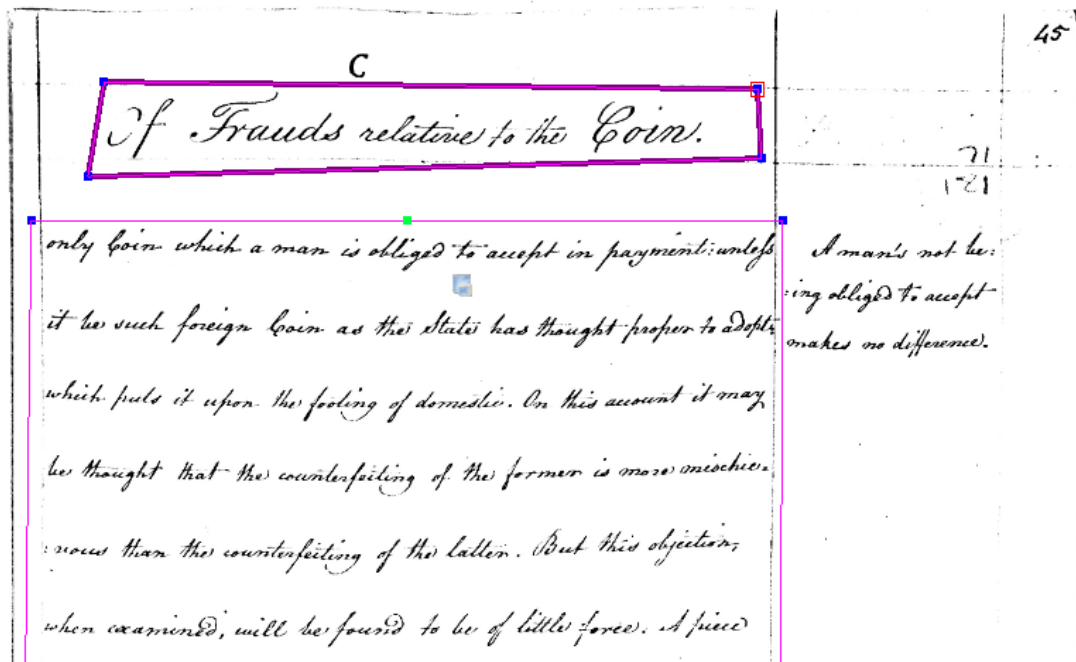 45
C
Of Frauds relative to the Coin.
71
121
only Coin which a man is obliged to accept in payment: unless
it be such foreign Coin as the State has thought proper to adopt:
which puts it upon the footing of domestic. On this account it may
be thought that the counterfeiting of the former is more mischie-
:vous than the counterfeiting of the latter. But this objection,
when examined, will be found to be of little force. A piece
A man's not be:
:ing obliged to accept
makes no difference.